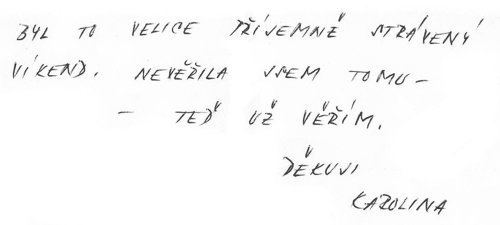 BYL TO VELICE PŘÍJEMNĚ STRÁVENÝ
VÍKEND. NEVĚŘILA JSEM TOMU –
– TEĎ UŽ VĚŘÍM.
DĚKUJI
KAROLINA